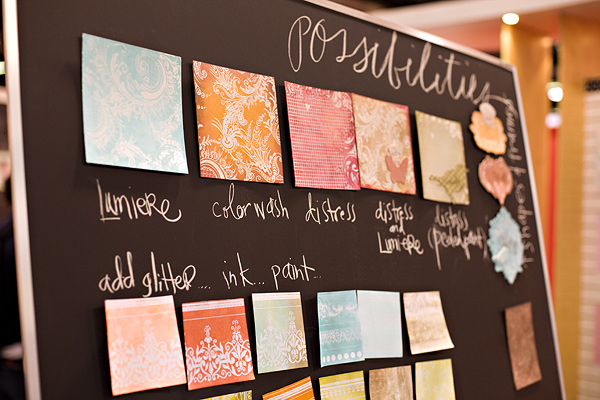 possibilities
Lumiere colorwash distress distress and Lumiere distress
add glitter.... ink... paint...
shapes